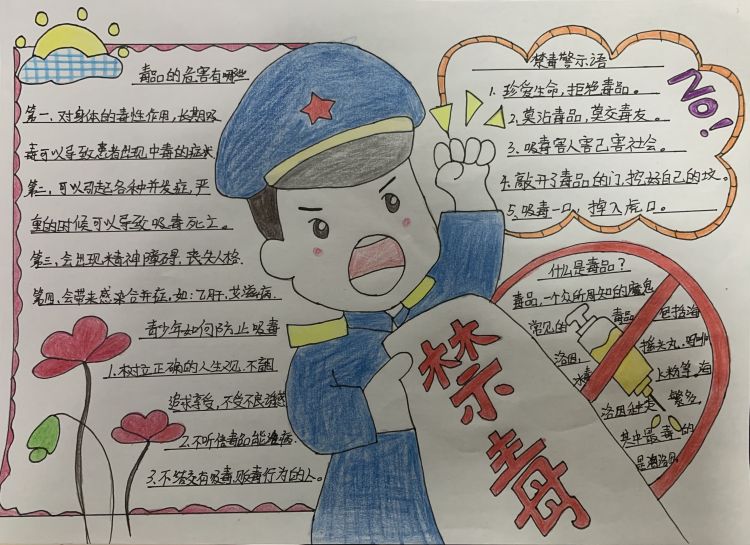 毒品的危害有哪些
第一.对身体的毒性作用,长期吸
毒可以导致患者出现中毒的症状
第二,可以引起各种并发症,严
重的时候可以导致吸毒死亡.
第三.会出现精神障碍,丧失人格.
第四.会带来感染合并症,如:乙肝,艾滋病.
青少年如何防止吸毒
1.树立正确的人生观,不盲
追求享受,不受不良诱惑
2.不听信毒品能治病.
3.不结交有吸毒、贩毒行为的人。
禁毒警示语
1.珍爱生命,拒绝毒品。
2.莫沾毒品,莫交毒友。
3.吸毒害人害己害社会。
4.敲开了毒品的门,挖好自己的坟。
5.吸毒一口,掉入虎口。
NO!
什么是毒品?
毒品,一个众所周知的魔鬼
常见的 毒品 包括海
洛因, 摇头丸,
冰毒 上粉等,海
洛因种类 繁多,
其中最毒的
是海洛因
禁毒